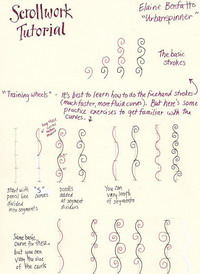 Scrollwork
Tutorial
Elaine Bonfatto
"Urbanspinner"
The basic
strokes
"Training Wheels" - it's best to learn how to do the freehand strokes
(much faster, more fluid curve). But here's some
practice exercises to get familiar with the
curves.
start with
pencil line
divided
into segments
"S"
curves
added
at segment
dividers
You can
vary length
of segments
Same basic
curve for these,
but you can
vary the size
of the curls